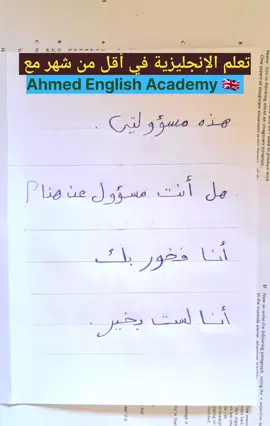 تعلم الإنجليزية في أقل من شهر مع
Ahmed English Academy 🇬🇧
هذه مسؤوليتي.
هل أنت مسؤول عن هذا؟
أنا فخور بك
أنا لست بخير.